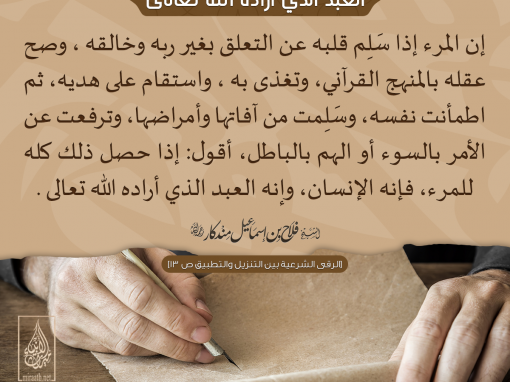 العبد الذي أراده الله تعالى
إن المرء إذا سَلِم قلبه عن التعلق بغير ربه وخالقه ، وصح
عقله بالمنهج القرآني، وتغذى به ، واستقام على هديه، ثم
اطمأنت نفسه، وسَلِمت من آفاتها وأمراضها، وترفعت عن
الأمر بالسوء أو الهم بالباطل، أقول: إذا حصل ذلك كله
للمرء، فإنه الإنسان، وإنه العبد الذي أراده الله تعالى .
فلاح بن إسماعيل مندكار
[الرقى الشرعية بين التنزيل والتطبيق ص ١٣]
ميراث الأنبياء
miraath.net